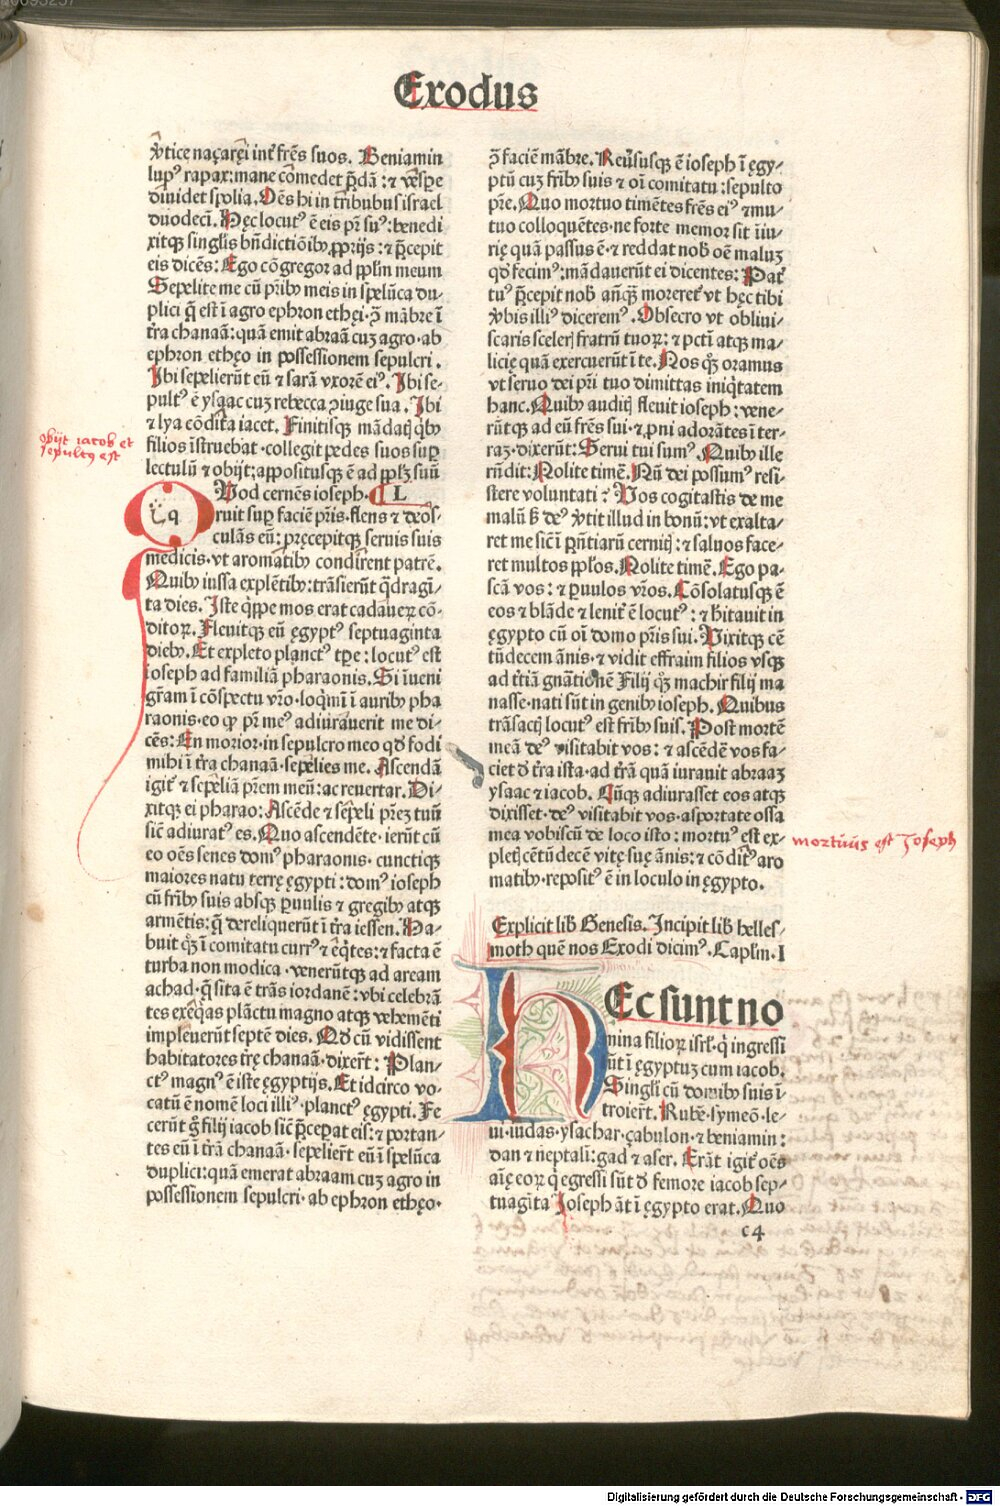 Exodus
v̾tice naçaręi int̾ frēs suos. Beniamin
lupꝰ rapax: mane cōmedet p̄dā: ⁊ vesꝑe
diuidet spolia. Oēs hi in tribubus israel
duodeci. Hęc locutꝰ ē eis pr̄ suꝰ: benedi
xitqꝫ singlis bn̄dictiōibꝰ ꝓprijs: ⁊ p̄cepit
eis dicēs: Ego cōgregor ad pplm̄ meum
Sepelite me cū pr̄ibꝰ meis in spelūca du⸗
plici q̄ est ī agro ephron ethęi ꝯ̄ mābre ī
tr̄a chanaā: quā emit abraā cuꝫ agro ab
ephron ethęo in possessionem sepulcri.
Ibi sepelierūt eū ⁊ sarā vxorē eiꝰ. Ibi se⸗
pultꝰ ē ysaac cuꝫ rebecca ꝯiuge sua. Ibi
⁊ lya cōdita iacet. Finitisqꝫ mādatꝭ qͥbꝰ
filios īstruebat collegit pedes suos suꝑ
lectulū ⁊ obijt: appositusqꝫ ē ad pplꝫ suū
obijt iacob et
sepultꝰ est
Vod cernēs ioseph. L
q
ruit suꝑ faciē pr̄is flens ⁊ deos⸗
culās eū: pręcepitqꝫ seruis suis
medicis vt aromatibꝰ condirent patrē.
Quibꝰ iussa explētibꝰ: trāsierūt qͣdragī⸗
ta dies. Iste qͥppe mos erat cadaueꝝ cō⸗
ditoꝝ. Fleuitqꝫ eū ęgyptꝰ septuaginta
diebꝰ. Et expleto planctꝰ tꝑe: locutꝰ est
ioseph ad familiā pharaonis. Si iueni
gr̄am ī cōspectu vr̄o loqͥmī ī auribꝰ pha
raonis eo ꝙ pr̄ meꝰ adiurauerit me di⸗
cēs: En morior in sepulcro meo qđ fodi
mihi ī tr̄a chanaā sepelies me. Ascendā
igit̾ ⁊ sepeliā prēm meū: ac reuertar. Di⸗
xitqꝫ ei pharao: Ascēde ⁊ sepeli pr̄eꝫ tuū
sic̄ adiuratꝰ es. Quo ascendēte ierūt cū
eo oēs senes domꝰ pharaonis cunctiqꝫ
maiores natu terrę ęgypti: domꝰ ioseph
cū fr̄ibꝰ suis absqꝫ ꝑuulis ⁊ gregibꝰ atqꝫ
armētis: q̄ dereliquerūt ī tr̄a iessen. Ha⸗
buit qꝫ ī comitatu currꝰ ⁊ eq̄tes: ⁊ facta ē
turba non modica venerūtqꝫ ad aream
achad q̄ sita ē trās iordanē: vbi celebrā
tes exeq̄as plāctu magno atqꝫ vehemēti
impleuerūt septē dies. Qđ cū vidissent
habitatores tr̄ę chanaā dixerūt: Plan⸗
ctꝰ magnꝰ ē iste ęgyptijs. Et idcirco vo⸗
catū ē nomē loci illiꝰ planctꝰ ęgypti. Fe
cerūt g̊ filij iacob sic̄ p̄ceꝑat eis: ⁊ portan⸗
tes eū ī tr̄ā chanaā sepelierūt eū ī spelūca
duplici: quā emerat abraam cuꝫ agro in
possessionem sepulcri ab ephron ethęo
ꝯ̄ faciē mābre. Reuersusqꝫ ē ioseph ī ęgy⸗
ptū cuꝫ fr̄ibꝰ suis ⁊ oī comitatu: sepulto
pr̄e. Quo mortuo timētes frēs eiꝰ ⁊ mu⸗
tuo colloquētes ne forte memor sit īiu⸗
rię quā passus ē ⁊ reddat nob̄ oē maluꝫ
qđ fecimꝰ: mādauerūt ei dicentes: Pat̾
tuꝰ p̄cepit nob̄ anq̄ꝫ moreret̾ vt hęc tibi
v̾bis illiꝰ diceremꝰ. Obsecro vt obliui⸗
scaris scelerꝭ fratrū tuoꝝ: ⁊ pctī atqꝫ ma⸗
licię quā exercuerūt ī te. Nos qꝫ oramus
vt seruo dei pr̄i tuo dimittas iniqͥtatem
hanc. Quibꝰ auditꝭ fleuit ioseph: vene⸗
rūtqꝫ ad eū frēs sui ⁊ ꝓni adorātes ī ter⸗
raꝫ dixerūt: Serui tui sumꝰ. Quibꝰ ille
rn̄dit: Nolite timē. Nū dei possumꝰ resi⸗
stere voluntati? Vos cogitastis de me
malū sꝫ deꝰ v̾tit illud in bonū: vt exalta⸗
ret me sic̄ ī pn̄tiarū cernitꝭ: ⁊ saluos face⸗
ret multos pplos. Nolite timē. Ego pa⸗
scā vos: ⁊ ꝑuulos vr̄os. Cōsolatusqꝫ ē
eos ⁊ blāde ⁊ lenit̾ ē locutꝰ: ⁊ hītauit in
ęgypto cū oī domo pr̄is sui. Vixitqꝫ cē
tūdecem ānis ⁊ vidit effraim filios vsqꝫ
ad tr̄tiā gnātionē Filij qꝫ machir filij ma
nasse nati sūt in genibꝰ ioseph. Quibus
trāsactꝭ locutꝰ est fr̄ibꝰ suis. Post mortē
meā deꝰ visitabit vos: ⁊ ascēdē vos fa⸗
ciet đ tr̄a ista ad tr̄ā quā iurauit abraaꝫ
ysaac ⁊ iacob. Cūqꝫ adiurasset eos atqꝫ
dixisset deꝰ visitabit vos asportate ossa
mea vobiscū de loco isto: mortuꝰ est ex⸗
pletꝭ cētūdecē vitę suę ānis: ⁊ cōditꝰ aro
matibꝰ repositꝰ ē in loculo in ęgypto.
mortuus est Ioseph
Explicit lib̄ Genesis. Incipit lib̄ helles⸗
moth quē nos Exodi dicimꝰ. Caplm̄. I
HEc sunt no
mina filioꝝ isrl̄ qͥ ingressi
sūt ī ęgyptuꝫ cum iacob.
Singlī cū domibꝰ suis ī
troierūt. Rubē symeō le⸗
ui iudas ysachar çabulon ⁊ beniamin:
dan ⁊ neptali: gad ⁊ aser. Erāt igit̾ oēs
aīę eoꝝ qͥ egressi sūt đ femore iacob sep⸗
tuagīta Ioseph āt ī ęgypto erat. Quo
c4
Digitalisierung gefördert durch die Deutsche Forschungsgemeinschaft - DFG